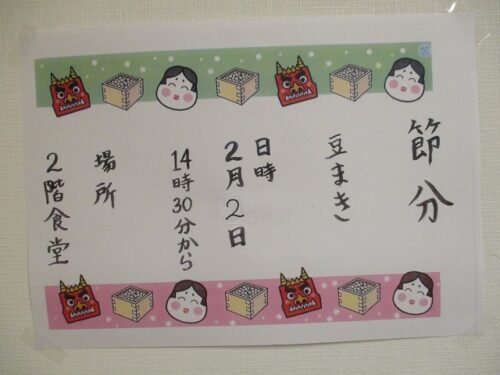 節分
豆まき
日時
2月2日
14時30分から
場所
2階食堂